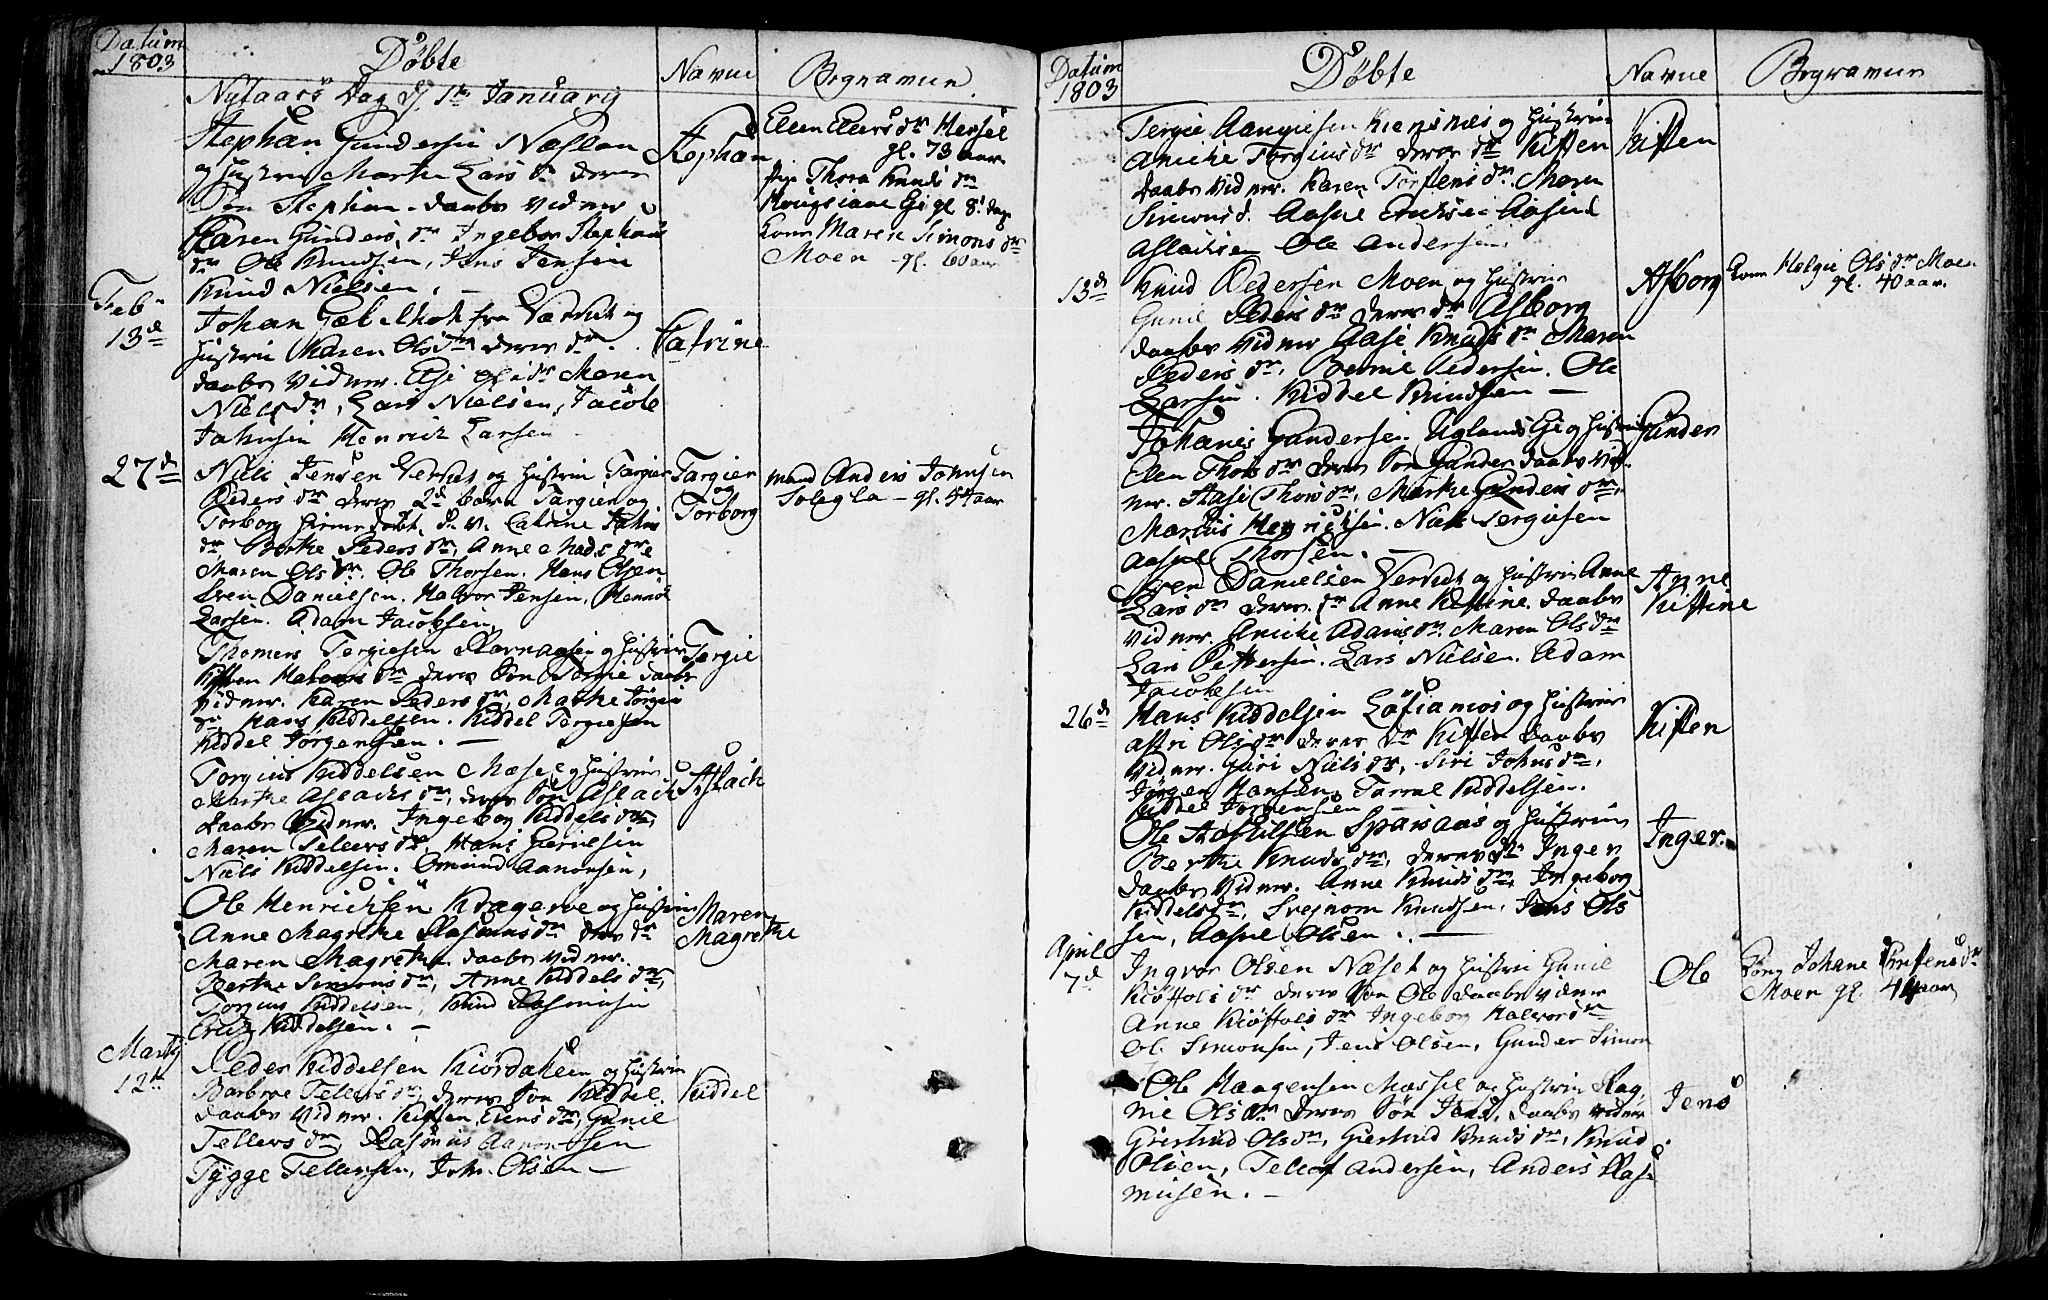 Datum
1803
Döbte
Navne
Begravne.
Nytaars Dag d 1te January
Stephan Gundersen Næslan
og Hustrue Marthe Lars dr deres
Søn Stephan. daabs Vidner
Karen Gunders dr Ingebor Stephans
dr Ole Knudsen, Jens Jensen
Knud Nielsen. —
Stephan
Ellen Ellevs dr Messel
gl. 73 aar
pige Thora Knuds dr
gl 8 dage
kone Maren Simons dr
Moen gl. 60 aar
Feb
13de
Johan fra Værket og
Hustrue Karen Ols dr deres dr.
daabs Vidner. Else dr Maren
Niels dr, Lars Nielsen, Jacob
Johnsen Henrick Larsen
Catrine
27de
Niels Jensen Verket og Hustrue Targier
Peders dr deres 2de børn Targier og
Torborg hieme døbt, d. v. Catrine Jahns
dr, Berthe Peders dr, Anne Mads dr
Maren Ols dr. Ole Thorsen. Hans Olsen
Sven Danielsen. Halvor Jensen, Henric
Larsen. Adam Jacobsen,
Targier
og
Torborg
mand Anders Johnsen
Solegla — gl. 54 aar
Thomes Tergiesen Ravnaasen og Hustrue
Kisten Halvors dr deres Søn Tergie daabs
Vidner. Karen Peders dr, Marthe Jørgen
dr Hans Kiddelsen. Kiddel Tergiesen
Kiddel Jørgensen. —
Tergie
Torgius Kiddelsen Mæsel og Hustrue
Marthe Aslachs dr, deres Søn Aslach
daabs Vidner. Ingebor Kiddels dr,
Maren Tellevs dr, Hans
Niels Kiddelsen. Omund Aanonsen,
Aslach
Ole Henrichsen Kragerøe og Hustrue
Anne Magrethe Rasmus dr deres dr
Maren Magrethe. daabs Vidner.
Berthe Simons dr, Anne Kiddels dr,
Torgius Kiddelsen, Knud Rasmusen
Erich Kiddelsen. —
Maren
Magrethe
Marty
12te
Peder Kiddelsen Kiørdalen og Hustrue
Barbroe Tellevs dr, deres Søn Kiddel.
daabs Vidner. Kisten Elens dr, Gunil
Tellevs dr, Rasmus Aanonsen
Tygge Tellevsen, Joh. Olsen —
Kiddel
Datum
1803
Döbte
Navne
Begravne
Tergie Aanonsen og Hustrue
Aniche Torgius dr deres dr Kisten
daabs Vidner. Karen Torstens dr Maren
Simons d. Aasne
Aslacksen Ole Andersen.
Kisten
13de
Knud Pedersen Moen og Hustrue
Gunil Peders dr deres dr Asborg
daabs Vidner Aase Knuds dr Maren
Peders dr. Pedersen. Ole
Larsen. Kiddel Knudsen —
Asborg
kone Helgie Ols dr Moen
gl. 40 aar.
Johanes Gundersen Uglands Ei og Hustrue
Elen Thors dr deres Søn Gunder daabs Vid
ner. Aase Thors dr, Marthe Gunders dr,
Marcus Henricksen. Niels Tergiesen
Thorsen. —
Gunder
Sven Danielsen Verket og Hustrue Anne
Lars dr deres dr Anne Kistine. daabs
Vidner. Aniche Adams dr. Maren Ols dr
Lars Pettersen. Lars Nielsen. Adam
Jacobsen
Anne
Kistine
26de
Hans Kiddelsen og Hustrue
Astri Ols dr deres dr Kisten daabs
Vidner. Guri Niels dr, Siri Johns dr,
Jørgen Hansen, Tarral Kiddelsen.
Kiddel Jørgensen
Kisten
Ole Aschildsen Sparsaas og Hustrue
Berthe Knuds dr, deres dr Inger
daabs Vidner. Anne Knuds dr, Ingeborg
Kiddels dr, Svenom Knudsen, Jens Ols
sen, Olsen. —
Inger.
April
7de
Ingvor Olsen Næset og Hustrue Gunil
Kiøstols dr deres Søn Ole daabs Vidner
Anne Kiøstols dr Ingeborg Halvors dr
Ol. Simonsen, Jens Olsen, Gunder Simon
Ole
Johane dr
Moen gl. 44 aar
Ole Haagensen Mæssel og Hustrue Rag,
nie Ols dr deres Søn Jens, daabs Vidner
Giertrud Ols dr, Giertrud Knuds dr, Knud
Olsen, Tellef Andersen, Anders Ras
musen. —
Jens